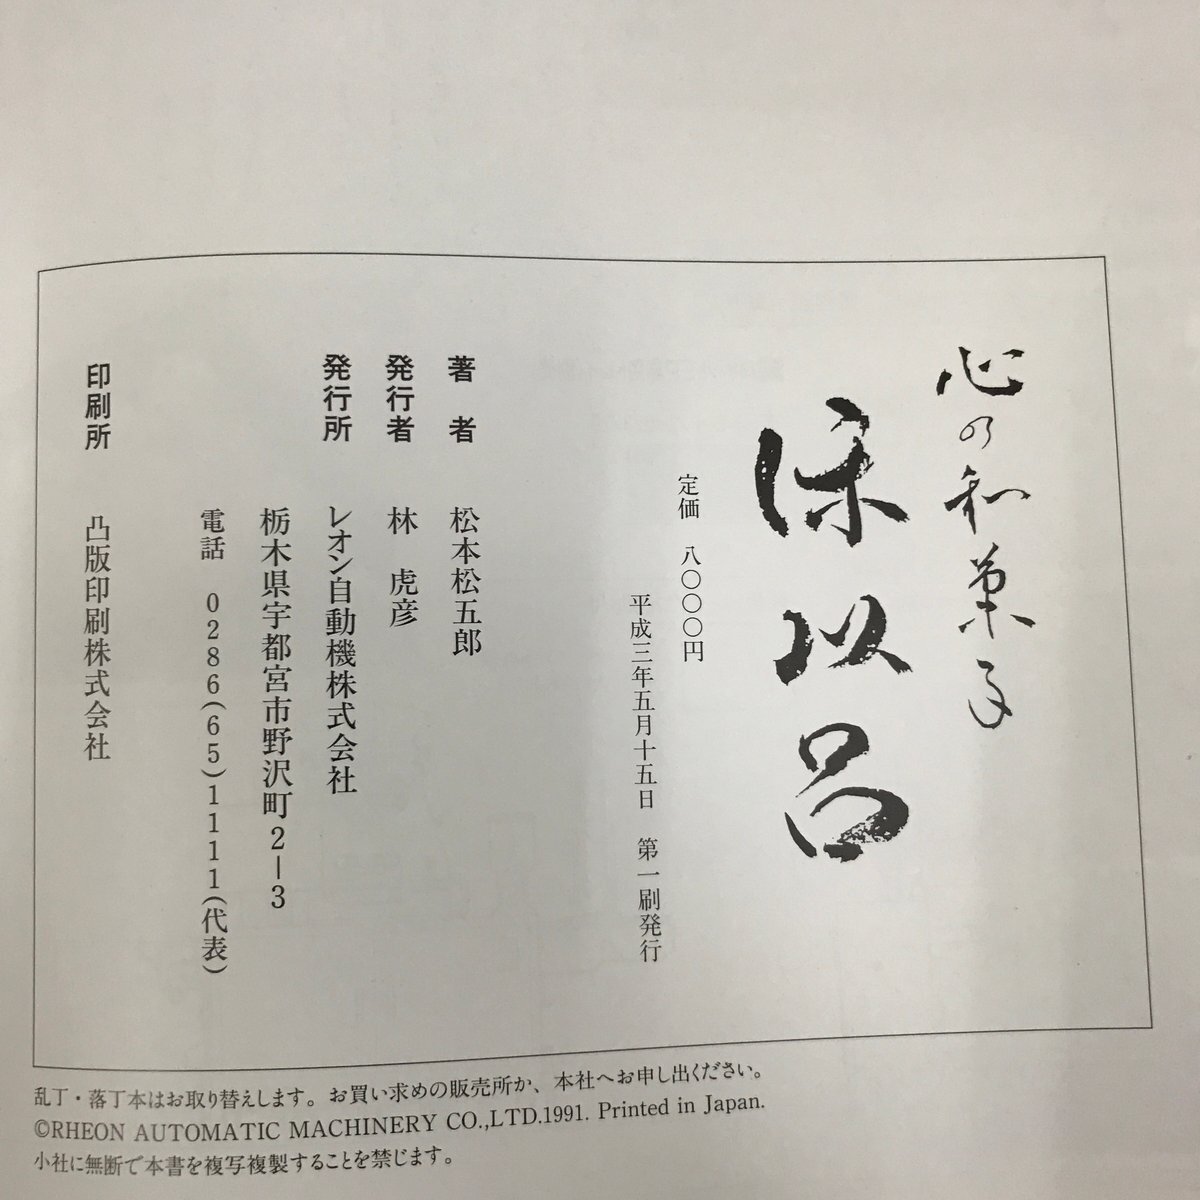 心の和菓子
保以呂
定価　八〇〇〇円
平成三年五月十五日　第一刷発行
著　者　松本松五郎
発行者　林　虎彦
発行所　レオン自動機株式会社
栃木県宇都宮市野沢町2-3
電話　0286(65)1111(代表)
印刷所　凸版印刷株式会社
乱丁・落丁本はお取り替えします。お買い求めの販売所か、本社へお申し出ください。
©RHEON AUTOMATIC MACHINERY CO.,LTD.1991. Printed in Japan.
小社に無断で本書を複写複製することを禁じます。